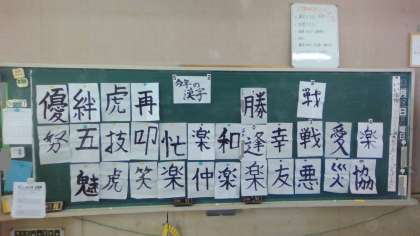 今年の
漢字
優 絆 虎 再 勝 戦
努 五 技 叩 忙 楽 和 逢 幸 戦 愛 楽
魅 虎 笑 楽 仲 楽 楽 友 悪 災 協
月
日